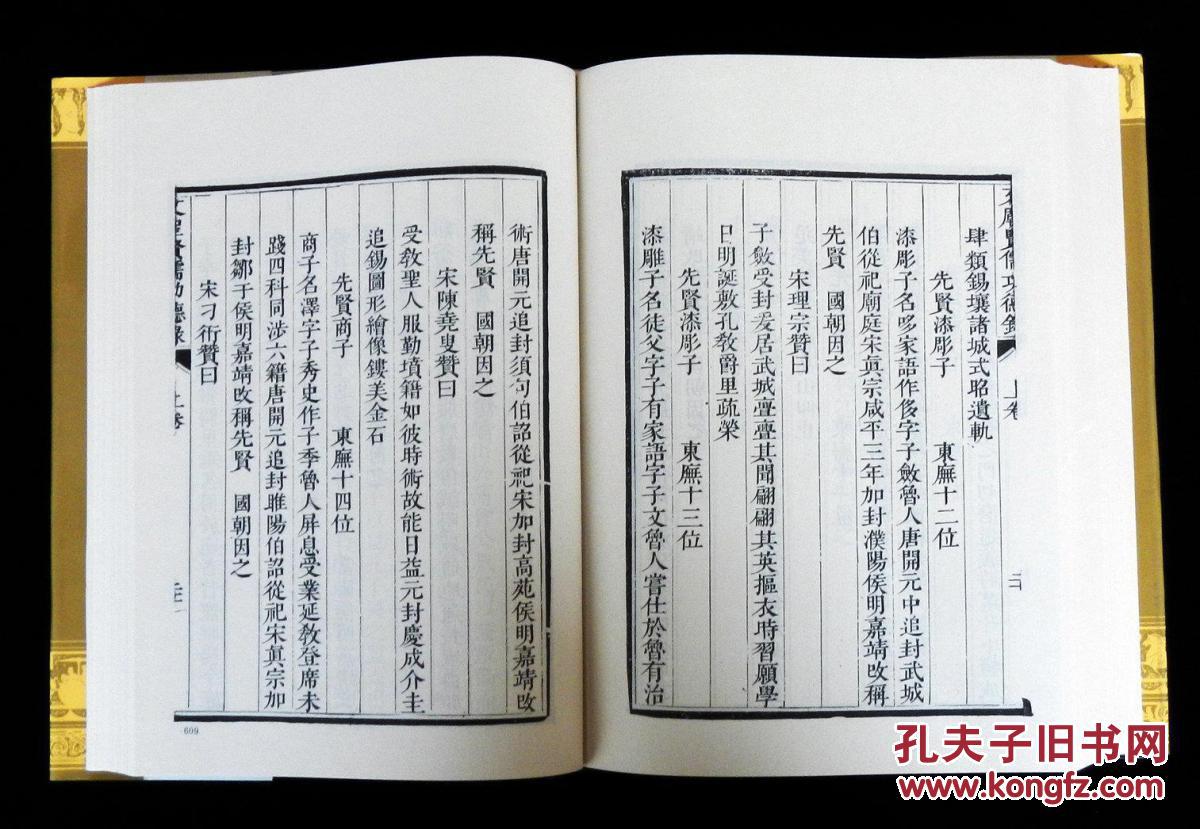 肆類錫壤諸城式昭遺軌
先賢漆彫子 東廡十二位
漆彫子名哆家語作侈字子斂魯人唐開元中追封武城
伯從祀廟庭宋眞宗咸平三年加封濮陽侯明嘉靖改稱
先賢 國朝因之
宋理宗贊曰
子斂受封爰居武城亹亹其聞翩翩其英摳衣時習願學
日明誕敷孔敎爵里疏榮
先賢漆彫子 東廡十三位
漆雕子名徒父字子有家語字子文魯人嘗仕於魯有治
術唐開元追封須句伯詔從祀宋加封高苑侯明嘉靖改
稱先賢 國朝因之
宋陳堯叟贊曰
受敎聖人服勤墳籍如彼時術故能日益元封慶成介圭
追錫圖形繪像鏤美金石
先賢商子 東廡十四位
商子名澤字子秀史作子季魯人屏息受業延敎登席未
踐四科同涉六籍唐開元追封睢陽伯詔從祀宋眞宗加
封鄒平侯明嘉靖改稱先賢 國朝因之
宋刁術贊曰
609
孔夫子旧书网
www.kongfz.com